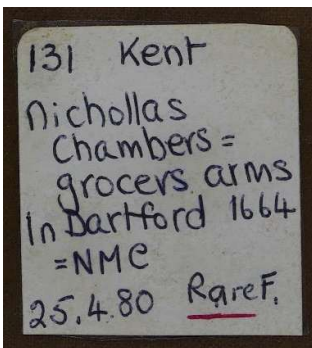 131 Kent
Nichollas
Chambers =
grocers arms
In Dartford 1664
=NMC
25.4.80 Rare F.